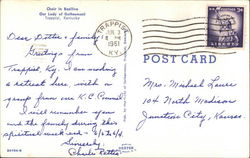 Choir in Basilica
Our Lady of Gethsemani
Trappist, Kentucky
TRAPPIST
JUN 3
1961
KY.
U.S. POSTAGE 3¢
LIBERTY
POST CARD
Dear Dottie & family,
Greetings from
Trappist, Ky. I am making
a retreat here with a
group from our K.C. Council.
I will remember you
and the family during this
spiritual week end
Sincerely,
Charles
Mrs. Michael
104 North Madison
Junction City, Kansas.